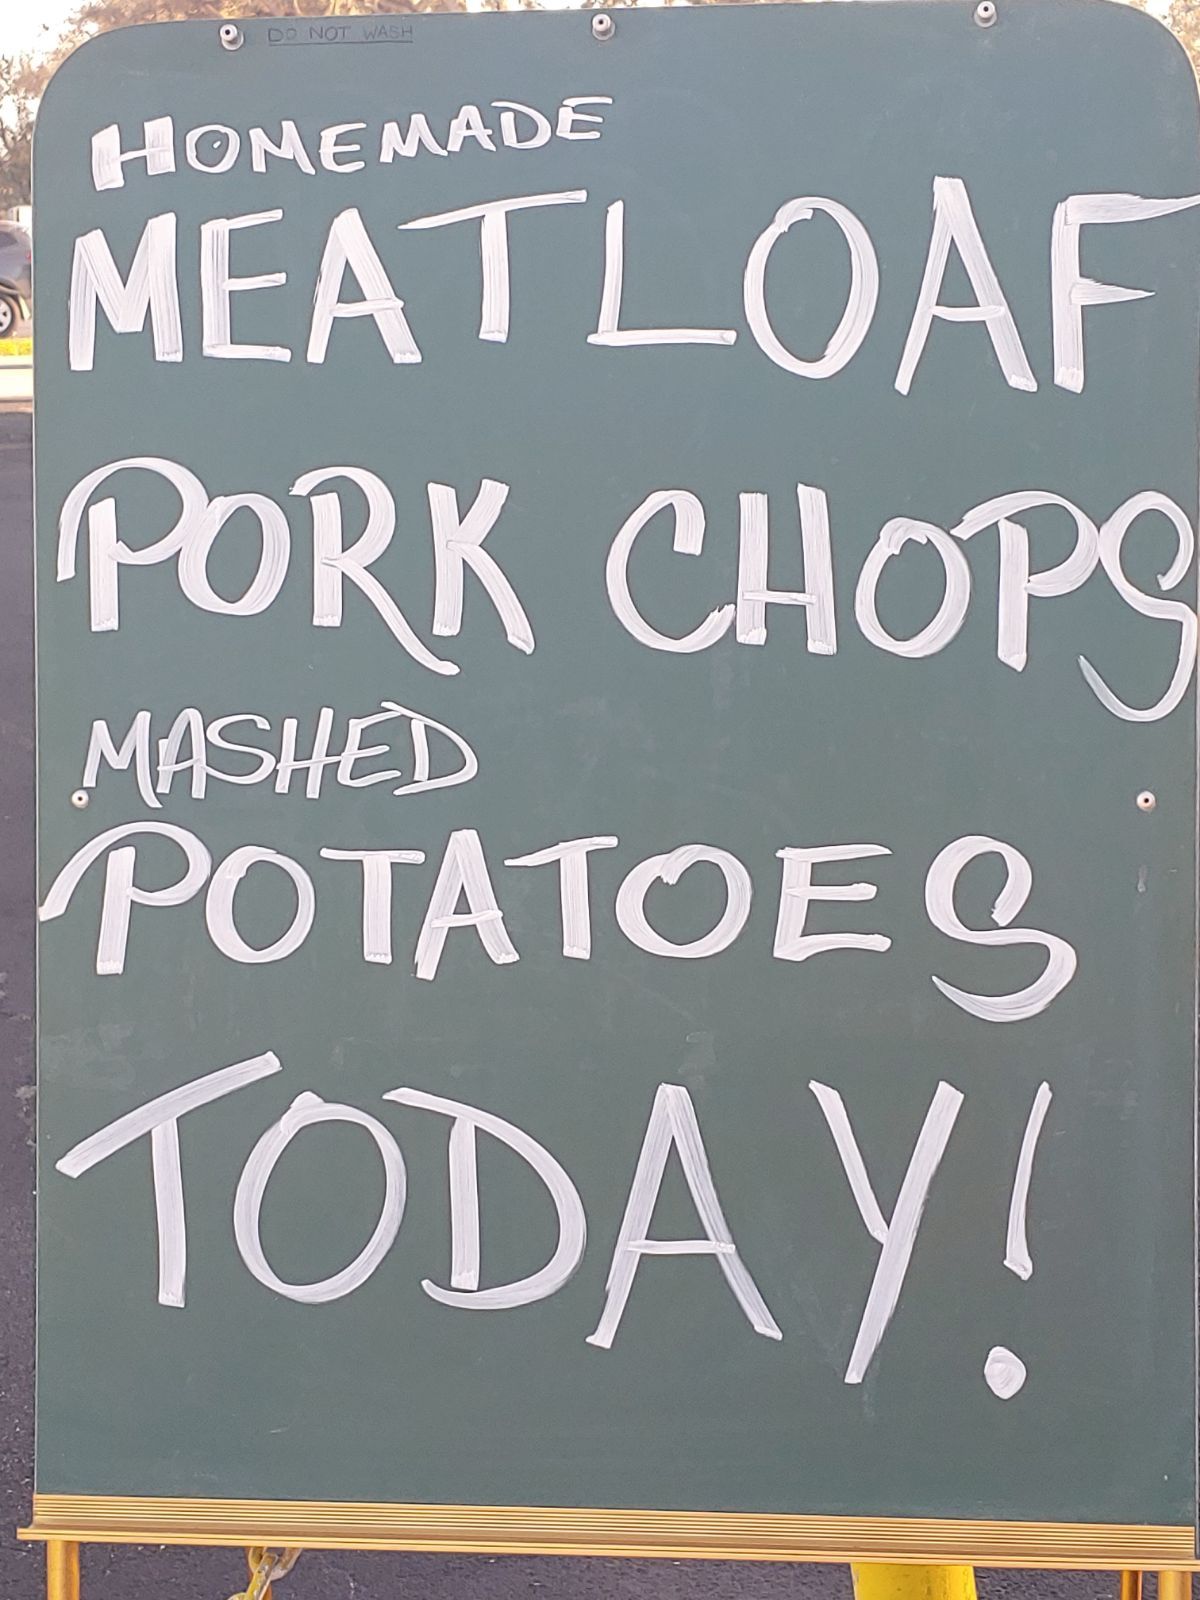 DO NOT WASH
HOMEMADE
MEATLOAF
PORK CHOPS
MASHED
POTATOES
TODAY!